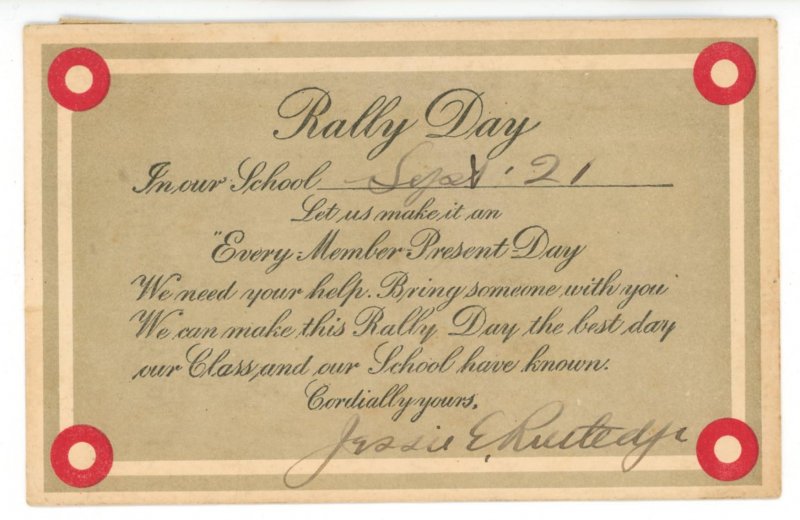 Rally Day
In our School Sept. 21
Let us make it an
"Every-Member-Present Day
We need your help. Bring someone with you
We can make this Rally Day the best day
our Class and our School have known.
Cordially yours,
Jessie E. Rutledge